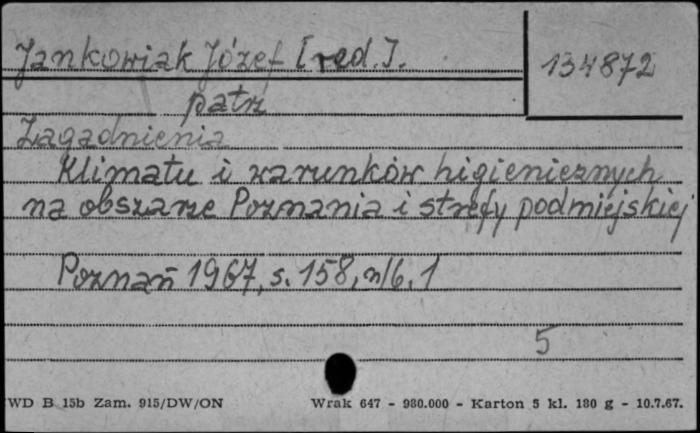 Jankowiak Józef [red.].
134872
patrz
Zagadnienia
Klimatu i warunków higienicznych
na obszarze Poznania i strefy podmiejskiej
Poznań 1967, s. 158, nlb. 1
5
WD B 15b Zam. 915/DW/ON Wrak 647 - 980.000 - Karton 5 kl. 180 g - 10.7.67.